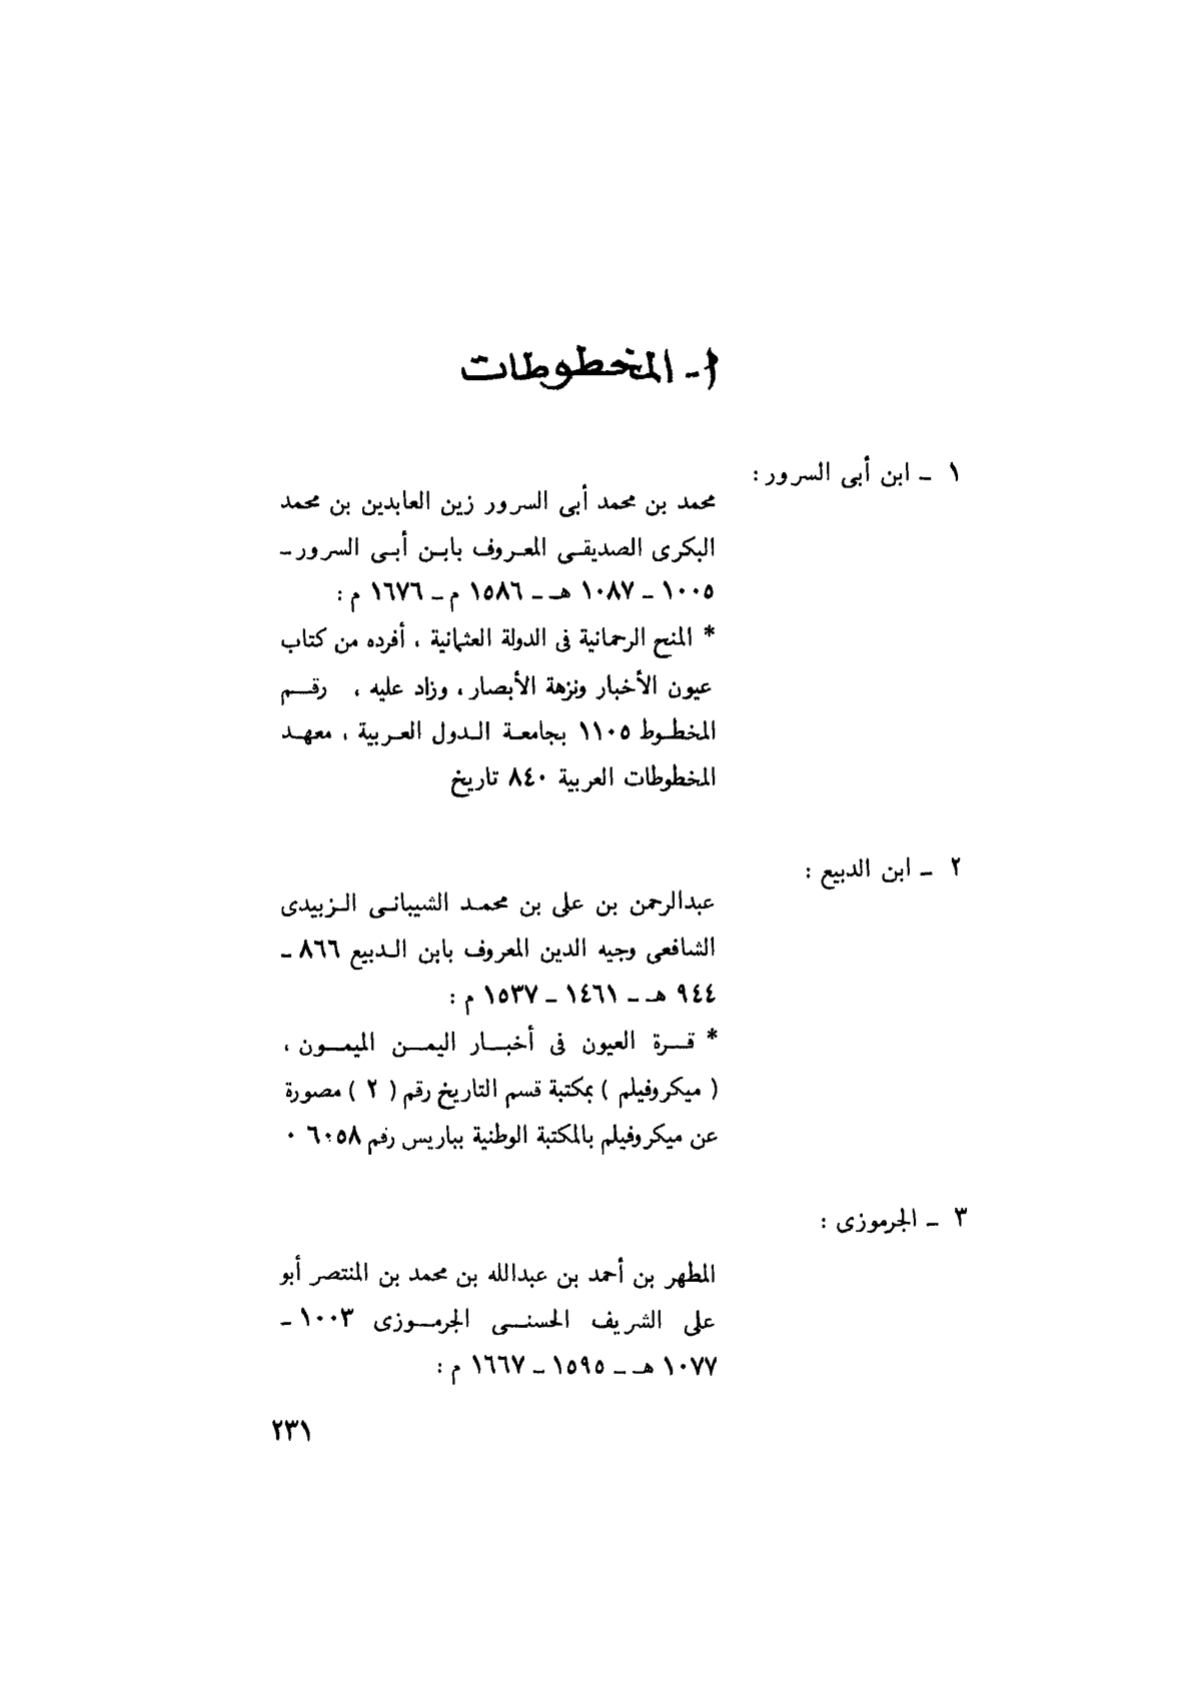 ١ - المخطوطات
١ - ابن أبى السرور :
محمد بن محمد أبى السرور زين العابدين بن محمد
البكرى الصديقى المعروف بابن أبى السرور -
١٠٠٥ - ١٠٨٧ هـ - ١٥٨٦ م - ١٦٧٦ م :
* المنح الرحمانية فى الدولة العثمانية ، أفرده من كتاب
عيون الأخبار ونزهة الأبصار ، وزاد عليه ، رقم
المخطوط ١١٠٥ بجامعة الدول العربية ، معهد
المخطوطات العربية ٨٤٠ تاريخ
٢ - ابن الدبيع :
عبدالرحمن بن على بن محمد الشيبانى الزبيدى
الشافعى وجيه الدين المعروف بابن الدبيع ٨٦٦ -
٩٤٤ هـ - ١٤٦١ - ١٥٣٧ م :
* قرة العيون فى أخبار اليمن الميمون ،
( ميكروفيلم ) بمكتبة قسم التاريخ رقم ( ٢ ) مصورة
عن ميكروفيلم بالمكتبة الوطنية بباريس رقم ٦٠٥٨ ٠
٣ - الجرموزى :
المطهر بن أحمد بن عبدالله بن محمد بن المنتصر أبو
على الشريف الحسنى الجرموزى ١٠٠٣ -
١٠٧٧ هـ - ١٥٩٥ - ١٦٦٧ م :
٢٣١